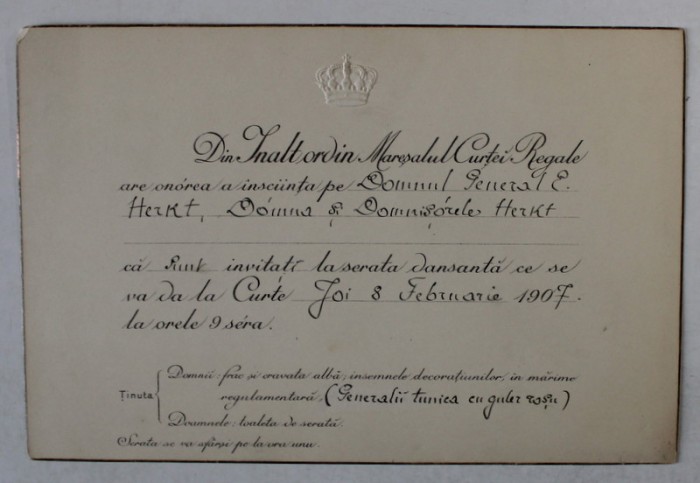 Din Inalt ordin Mareșalul Curței Regale
are onórea a insciința pe Domnul General E.
Herkt, Dómna și Domnișórele Herkt
că sunt invitați la serata dansantă ce se
va da la Curte Joi 8 Februarie 1907.
la orele 9 séra.
Domnii: frac și cravata albă; insemnele decorațiunilor, in mărime
Ținuta regulamentară, (Generalii tunica cu guler roșu)
Doamnele: toaleta de serată.
Serata se va sfârși pe la ora unu.